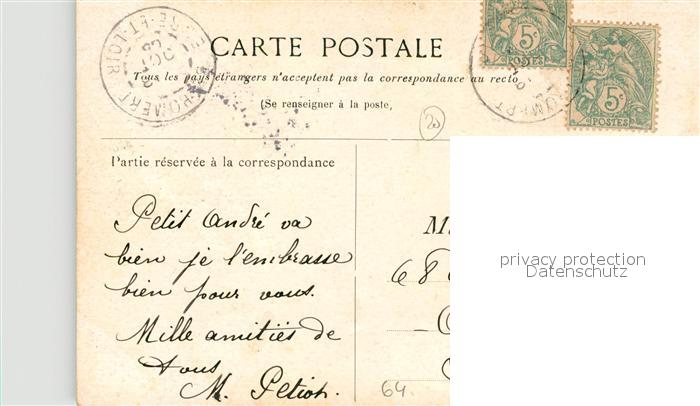 CARTE POSTALE
Tous les pays étrangers n'acceptent pas la correspondance au recto
(Se renseigner à la poste,
20
Partie réservée à la correspondance
Petit André va
bien je l'embrasse
bien pour vous.
Mille amitiés de
tous
M. Petiot.
M.
68
64.
5c
POSTES
5c
POSTES
EURE-ET-LOIR
privacy protection
Datenschutz